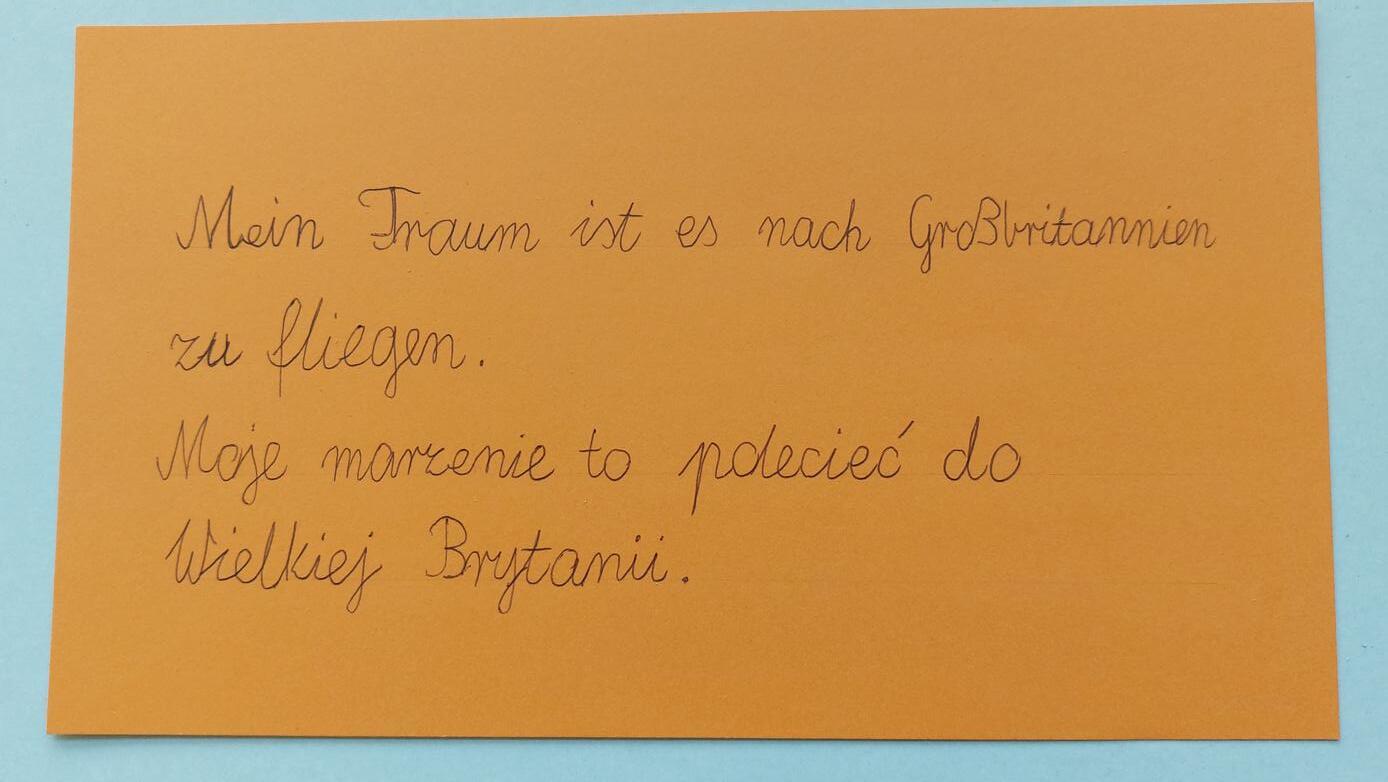 Mein Traum ist es nach Großbritannien
zu fliegen.
Moje marzenie to polecieć do
Wielkiej Brytanii.